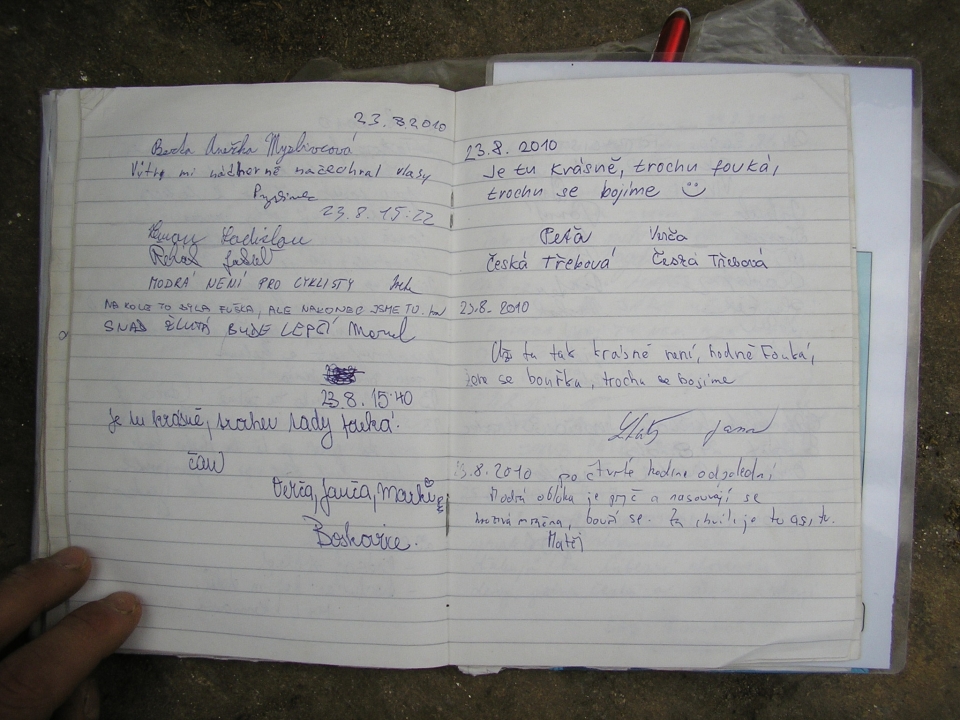 23.8.2010
Anežka Myslivcová
mi nádherně načechral vlasy
23.8. 15:22
Ladislav
MODRÁ NENÍ PRO CYKLISTY
NA KOLE TO BYLA FUŠKA, ALE NAKONEC JSME TU.
SNAD ŽLUTÁ BUDE LEPČÍ
23.8. 15:40
je tu krásně, trochu tady fouká!
čau
Verča, Janča,
Boskovice.
23.8. 2010
Je tu krásně, trochu fouká,
trochu se bojíme
Peťa Verča
Česká Třebová Česká Třebová
23.8. 2010
Už tu tak krásně není, hodně fouká,
se bouřka, trochu se bojíme
Jana
23.8.2010 po čtvrté hodině odpolední
Modrá obloha je pryč a nasouvají se
hrozivá mračna, bouří se. Za chvili je tu asi, tu.
Matěj